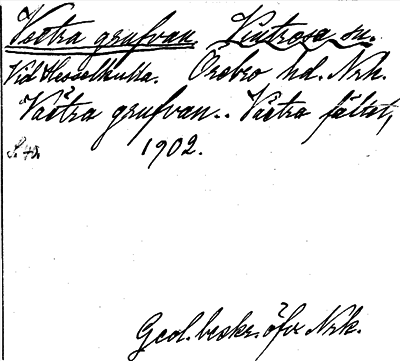 Västra grufvan Vintrosa sn.
Vid Hesselkulla. Örebro hd. Nrk.
Västra grufvan.. Västra fältet,
S. 42 1902.
Geol. beskr. öfv. Nrk.